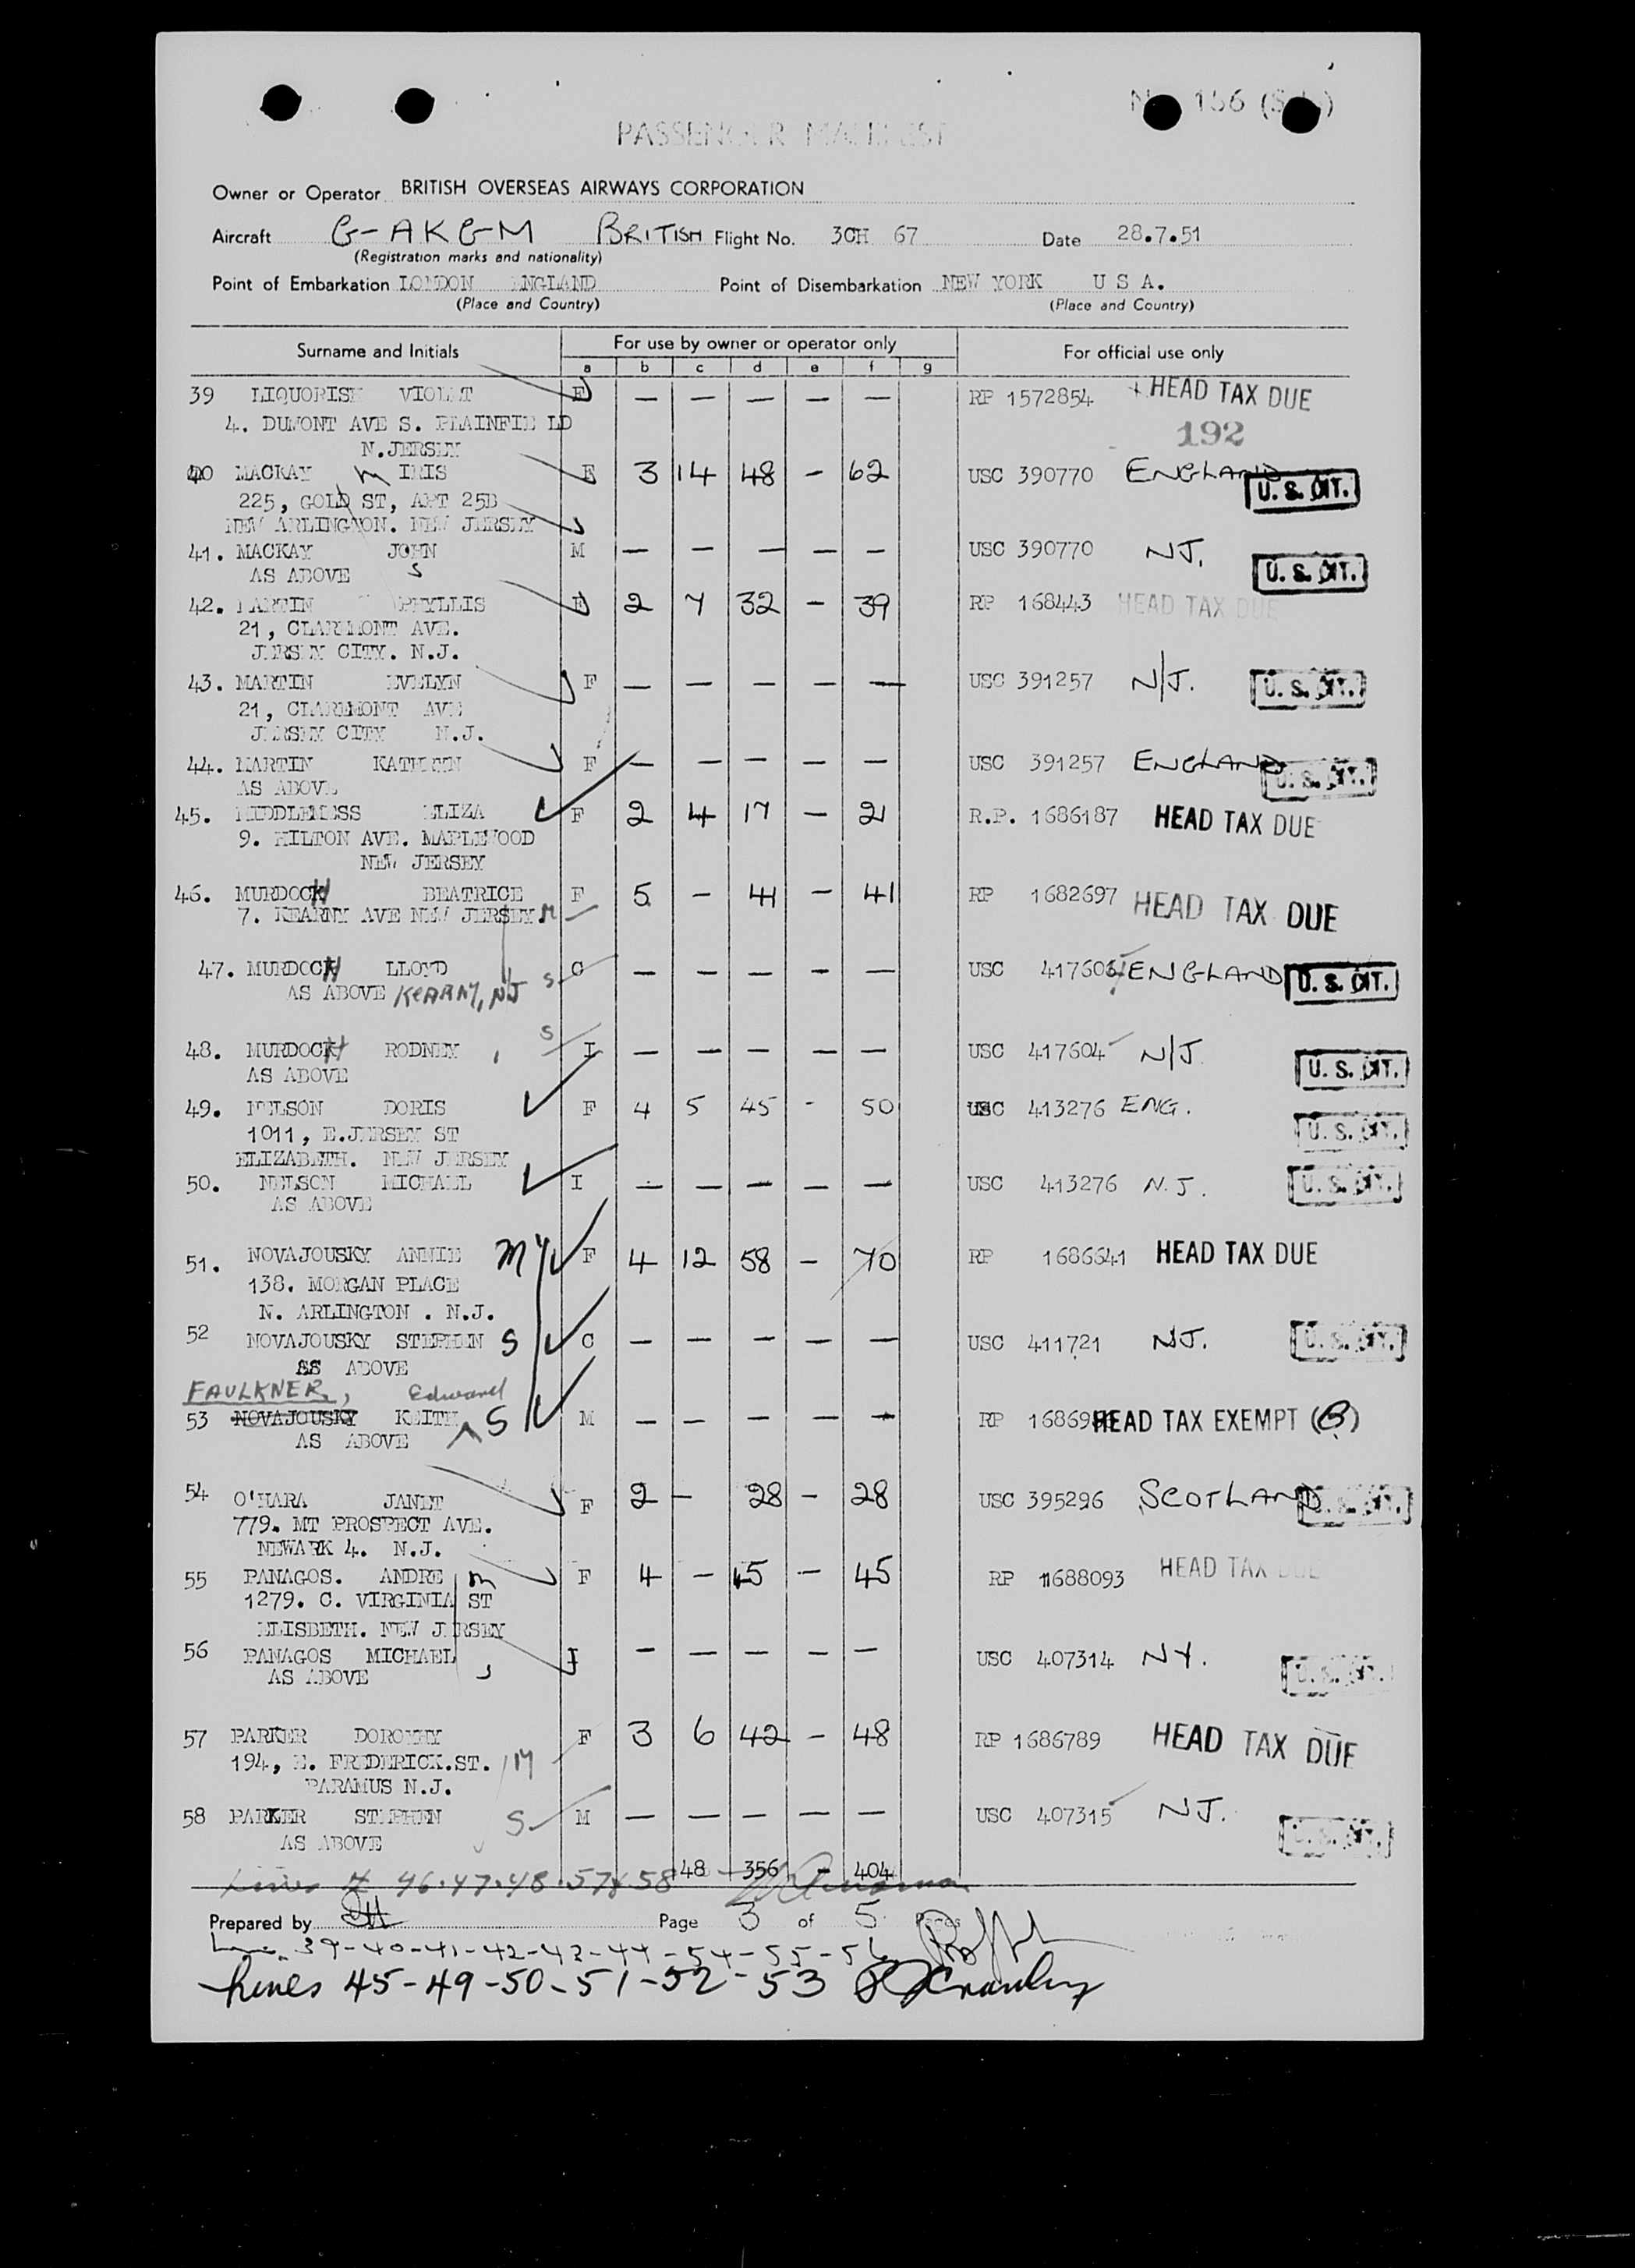 No 156
PASSENGER MANIFEST
Owner or Operator BRITISH OVERSEAS AIRWAYS CORPORATION
Aircraft G-AKGM BRITISH Flight No. 3CH 67 Date 28.7.51
(Registration marks and nationality)
Point of Embarkation LONDON ENGLAND Point of Disembarkation NEW YORK U S A.
(Place and Country) (Place and Country)
Surname and Initials For use by owner or operator only For official use only
a b c d e f g
39 LIQUORISH VIOLET F — — — — — RP 1572854 HEAD TAX DUE
4. DUMONT AVE S. PLAINFIE LD 192
N.JERSEY
40 MACKAY m IRIS F 3 14 48 - 62 USC 390770 ENGLAND U. S. CIT.
225, GOLD ST, APT 25B
NEW ARLINGTON. NEW JERSEY
41. MACKAY JOHN M — — — — — USC 390770 NJ. U. S. CIT.
AS ABOVE S
42. MARTIN PHYLLIS F 2 7 32 - 39 RP 168443 HEAD TAX DUE
21, CLAREMONT AVE.
JERSEY CITY. N.J.
43. MARTIN EVELYN F — — — — — USC 391257 N/J. U. S. CIT.
21, CLAREMONT AVE
JERSEY CITY N.J.
44. MARTIN KATHLEEN F — — — — — USC 391257 ENGLAND U. S. CIT.
AS ABOVE
45. MIDDLEMESS ELIZA F 2 4 17 — 21 R.P. 1686187 HEAD TAX DUE
9. HILTON AVE. MAPLEWOOD
NEW JERSEY
46. MURDOCH BEATRICE F 5 - 41 - 41 RP 1682697 HEAD TAX DUE
7. KEARNY AVE NEW JERSEY M
47. MURDOCH LLOYD S C — — — — — USC 417605 ENGLAND U. S. CIT.
AS ABOVE KEARNY, NJ
48. MURDOCH RODNEY S I — — — — — USC 417604 N/J U. S. CIT.
AS ABOVE
49. NELSON DORIS F 4 5 45 - 50 USC 413276 ENG. U. S. CIT.
1011, E.JERSEY ST
ELIZABETH. NEW JERSEY
50. NELSON MICHAEL I — — — — — USC 413276 N.J. U. S. CIT.
AS ABOVE
51. NOVAJOUSKY ANNIE M F 4 12 58 — 70 RP 1686641 HEAD TAX DUE
138. MORGAN PLACE
N. ARLINGTON . N.J.
52 NOVAJOUSKY STEPHEN S C — — — — — USC 411721 NJ. U. S. CIT.
AS ABOVE
FAULKNER, Edward
53 NOVAJOUSKY KEITH S M — — — — — RP HEAD TAX EXEMPT (B)
AS ABOVE
54 O'HARA JANET F 2 — 28 — 28 USC 395296 SCOTLAND U. S. CIT.
779. MT PROSPECT AVE.
NEWARK 4. N.J.
55 PANAGOS. ANDRE m F 4 — 45 — 45 RP 1688093 HEAD TAX DUE
1279. C. VIRGINIA ST
ELISBETH. NEW JERSEY
56 PANAGOS MICHAEL S I — — — — — USC 407314 NY. U. S. CIT.
AS ABOVE
57 PARKER DOROTHY F 3 6 42 — 48 RP 1686789 HEAD TAX DUE
194, E. FREDERICK.ST. M
PARAMUS N.J.
58 PARKER STEPHEN S M — — — — — USC 407315 NJ. U. S. CIT.
AS ABOVE
48 356 - 404
Lines 46.47.48.57+58
Prepared by Page 3 of 5 Pages
Lines 39-40-41-42-43-44-54-55-56
Lines 45-49-50-51-52-53